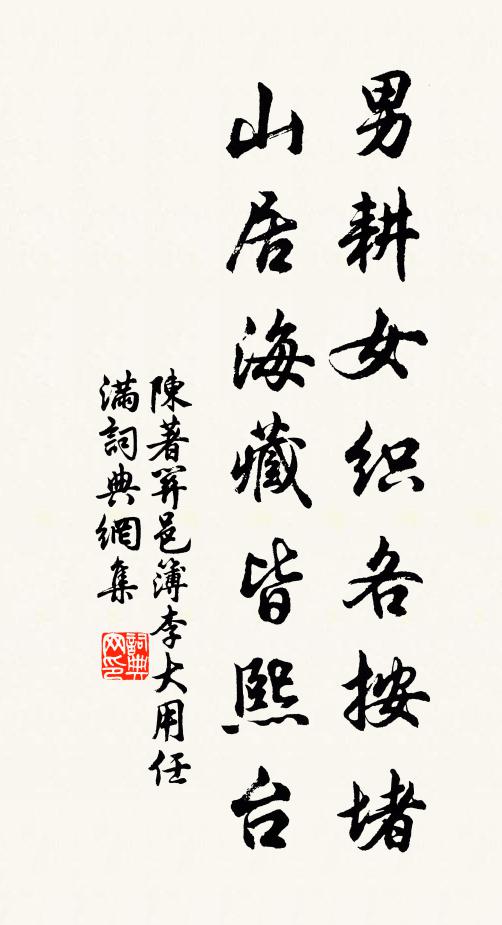 男耕女织各按堵
山居海藏皆熙台
陳著羿邑簿李大用任
滿詞典網集
詞典网印